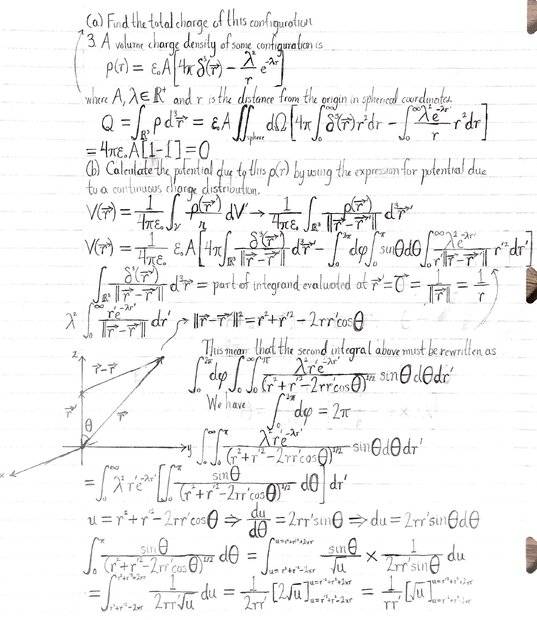 (a) Find the total charge of this configuration
3. A volume charge density of some configuration is
ρ(r) = ε₀A[4πδ³(r⃗) − λ²/r e^(-λr)]
where A, λ ∈ ℝ⁺ and r is the distance from the origin in spherical coordinates.
Q = ∫_ℝ³ ρ d³r⃗ = ε₀A ∬_sphere dΩ [4π ∫₀^∞ δ³(r⃗) r² dr − ∫₀^∞ λ²e^(-λr)/r r² dr]
= 4πε₀A[1−1] = 0
(b) Calculate the potential due to this ρ(r) by using the expression for potential due
to a continuous charge distribution.
V(r⃗) = 1/4πε₀ ∫_V ρ(r⃗')/𝓇 dV' → 1/4πε₀ ∫_ℝ³ ρ(r⃗')/‖r⃗−r⃗'‖ d³r⃗'
V(r⃗) = 1/4πε₀ ε₀A[4π ∫_ℝ³ δ³(r⃗')/‖r⃗−r⃗'‖ d³r⃗' − ∫₀^2π dφ ∫₀^π sinθdθ ∫₀^∞ λ²e^(-λr')/r'‖r⃗−r⃗'‖ r'² dr']
∫_ℝ³ δ³(r⃗')/‖r⃗−r⃗'‖ d³r⃗' = part of integrand evaluated at r⃗' = 0⃗ = 1/‖r⃗‖ = 1/r
λ² ∫₀^∞ r'e^(-λr')/‖r⃗−r⃗'‖ dr' → ‖r⃗−r⃗'‖² = r²+r'²−2rr'cosθ
This means that the second integral above must be rewritten as
z
r⃗−r⃗'
∫₀^2π dφ ∫₀^∞ ∫₀^π λ²r'e^(-λr')/(r²+r'²−2rr'cosθ)^1/2 sinθdθdr'
r⃗'
θ
r⃗
We have
∫₀^2π dφ = 2π
x
y
∫₀^∞ ∫₀^π λ²r'e^(-λr')/(r²+r'²−2rr'cosθ)^1/2 sinθdθdr'
= ∫₀^∞ λ²r'e^(-λr') [∫₀^π sinθ/(r²+r'²−2rr'cosθ)^1/2 dθ] dr'
u = r²+r'²−2rr'cosθ ⇒ du/dθ = 2rr'sinθ ⇒ du = 2rr'sinθdθ
∫₀^π sinθ/(r²+r'²−2rr'cosθ)^1/2 dθ = ∫_(u=r²+r'²−2rr')^(u=r²+r'²+2rr') sinθ/√u × 1/2rr'sinθ du
= ∫_(r²+r'²−2rr')^(r²+r'²+2rr') 1/2rr'√u du = 1/2rr' [2√u]_(u=r²+r'²−2rr')^(u=r²+r'²+2rr') = 1/rr' [√u]_(u=r²+r'²−2rr')^(u=r²+r'²+2rr')